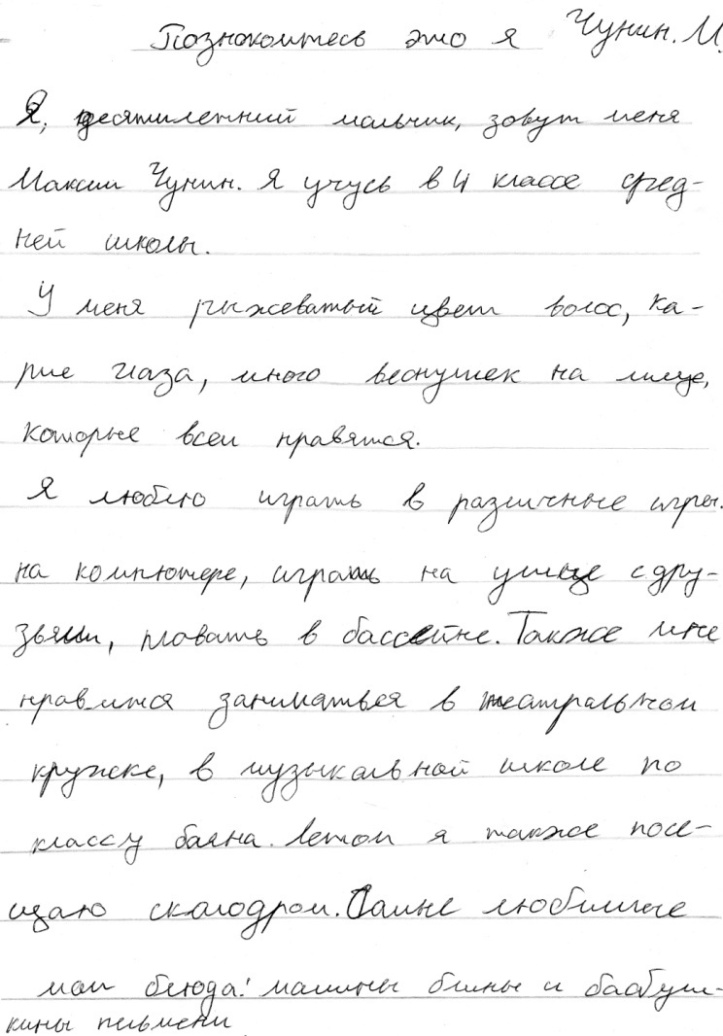 Познакомтесь это я Чунин. М.
Я, десятилетний мальчик, зовут меня
Максим Чунин. Я учусь в 4 классе сред-
ней школы.
У меня рыжеватый цвет волос, ка-
рие глаза, много веснушек на лице,
которые всем нравятся.
Я люблю играть в различные игры.
на компютере, играть на улице с дру-
зьями, плавать в бассейне. Также мне
нравится заниматься в театральном
кружке, в музыкальной школе по
классу баяна. Летом я также посе-
щаю скалодром. Самые любимые
мои блюда: мамины блины и баабуш-
кины пельмени